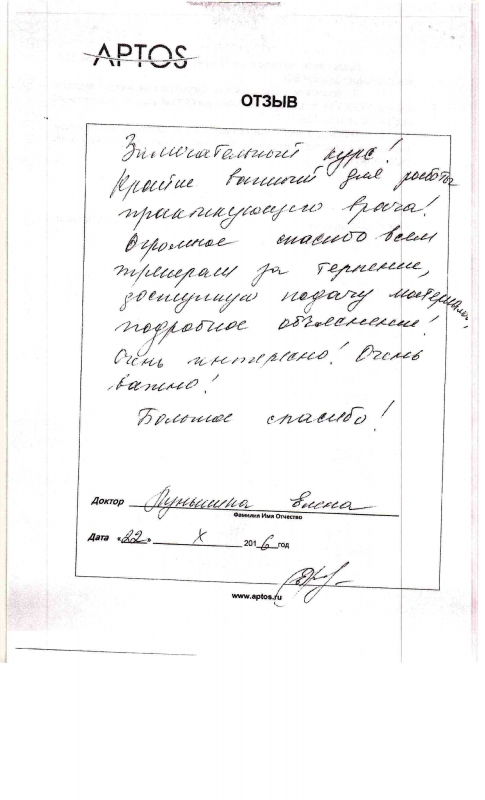 APTOS
ОТЗЫВ
Замечательный курс!
Крайне важный для работы
практикующего врача!
Огромное спасибо всем
тренерам за терпение,
доступную подачу материала,
подробное объяснение!
Очень интересно! Очень
важно!
Большое спасибо!
Доктор Елена
Фамилия Имя Отчество
Дата «22» X 2016 год
www.aptos.ru